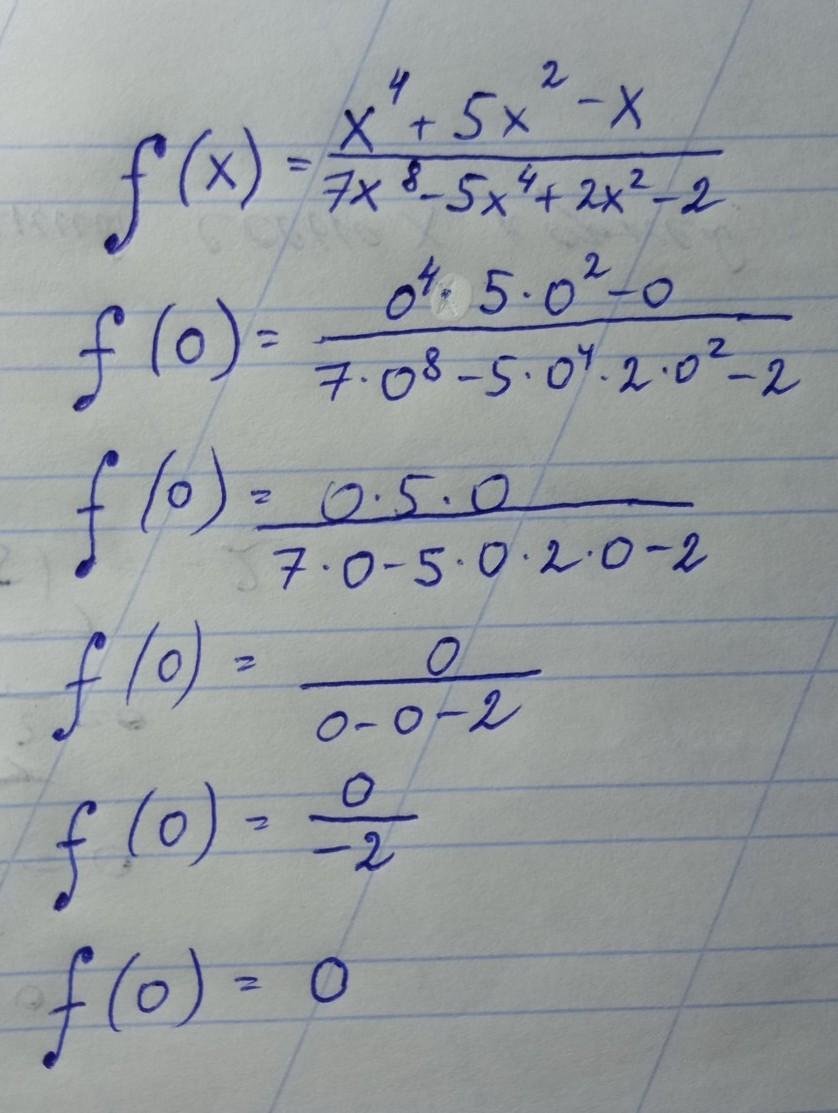 f(x) = \frac{x^4 + 5x^2 - x}{7x^8 - 5x^4 + 2x^2 - 2}
f(0) = \frac{0^4 \cdot 5 \cdot 0^2 - 0}{7 \cdot 0^8 - 5 \cdot 0^4 \cdot 2 \cdot 0^2 - 2}
f(0) = \frac{0 \cdot 5 \cdot 0}{7 \cdot 0 - 5 \cdot 0 \cdot 2 \cdot 0 - 2}
f(0) = \frac{0}{0 - 0 - 2}
f(0) = \frac{0}{-2}
f(0) = 0